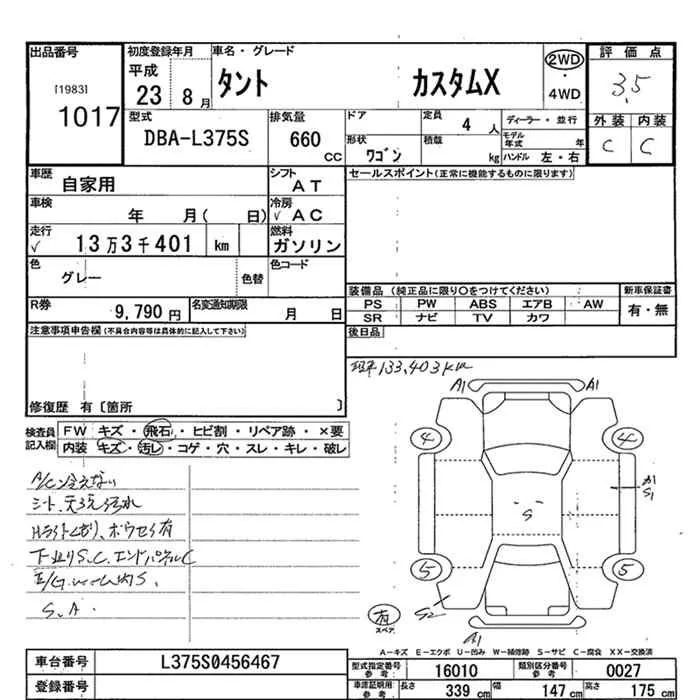 出品番号 初度登録年月 車名・グレード 2WD 評価点
[1983] 平成 タント カスタムX ・ 3.5
1017 23 8月 4WD
型式 排気量 ドア 定員 4人 ディーラー・並行 外装 内装
DBA-L375S 660 CC 形状 ワゴン 積載 kg モデル年式 年 C C
ハンドル 左・右
車歴 自家用 シフト AT セールスポイント(正常に機能するものに限ります)
車検 年 月( 日) 冷房 ✓ AC
走行 ✓ 13万3千401 km 燃料 ガソリン
色 グレー 色替 色コード
装備品 (純正品に限り○をつけてください) 新車保証書
R券 9,790円 名変通知期限 月 日 PS PW ABS エアB AW 有・無
SR ナビ TV カワ
注意事項申告欄(不具合内容等は具体的に記入して下さい) 後日品
133,403km
修復歴 有〔箇所 〕
検査員 FW キズ・飛石・ヒビ割・リペア跡・×要
記入欄 内装 キズ・汚レ・コゲ・穴・スレ・キレ・破レ
A1 A1
4 4
A/C 冷えない
A1
S1
シート、天張汚れ
S
Hライトくもり、ボウセイ有
下廻りS.C.エンドパネルC
5 5
E/Gルーム内S.
S.A.
S2
有
スペア
A1
A-キズ E-エクボ U-凹み W-補修跡 S-サビ C-腐食 XX-交換済
車台番号 L375S0456467 型式指定番号 参考: 16010 類別区分番号 参考: 0027
登録番号 車庫証明用 参考: 長さ 339 cm 幅 147 cm 高さ 175 cm